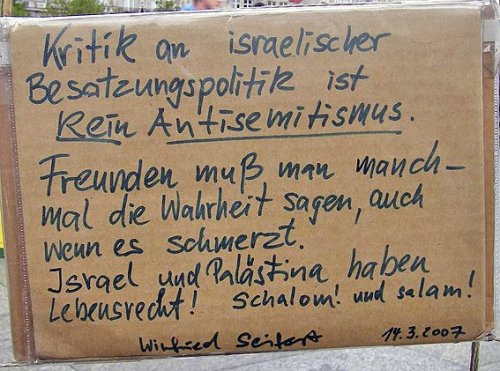 Kritik an israelischer
Besatzungspolitik ist
Kein Antisemitismus.
Freunden muß man manch-
mal die Wahrheit sagen, auch
wenn es schmerzt.
Israel und Palästina haben
Lebensrecht! Schalom! und salam!
Winfried Seifert 14.3.2007